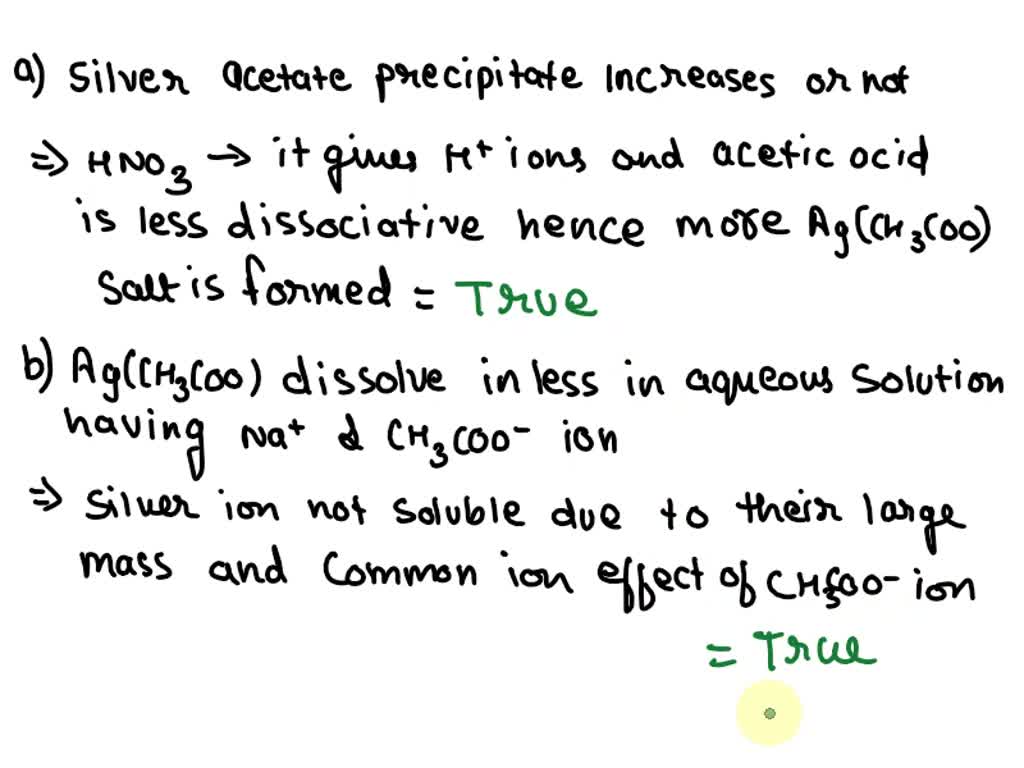 a) Silver acetate precipitate Increases or not
⇒ HNO₃ → it gives H⁺ ions and acetic acid
is less dissociative hence more Ag(CH₃COO)
Salt is formed = True
b) Ag(CH₃COO) dissolve in less in aqueous Solution
having Na⁺ & CH₃COO⁻ ion
⇒ Silver ion not soluble due to their large
mass and Common ion effect of CH₃COO⁻ ion
= True